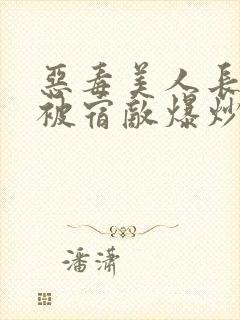 惡毒美人長
被宿敵爆炒
潘瀟